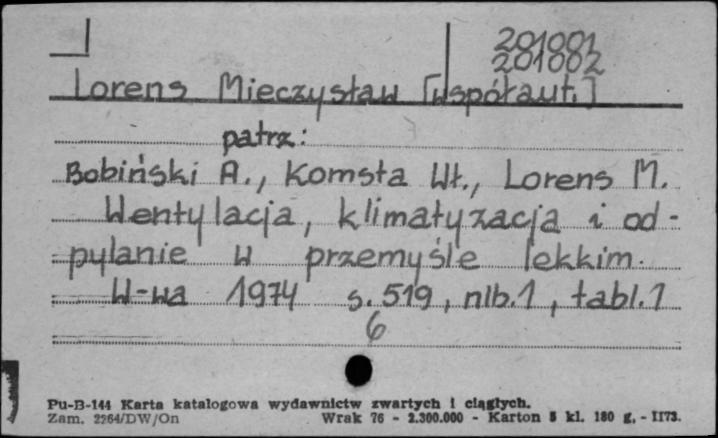 201001
201002
Lorens Mieczysław [współaut.]
patrz:
Bobiński A., Komsta Wł., Lorens M.
Wentylacja, klimatyzacja i od-
pylanie w przemyśle lekkim.
W-wa 1974 s. 519, nlb. 1, tabl. 1
6
Pu-B-144 Karta katalogowa wydawnictw zwartych i ciągłych.
Zam. 2264/DW/On Wrak 76 - 2.300.000 - Karton 5 kl. 180 g. - II73.